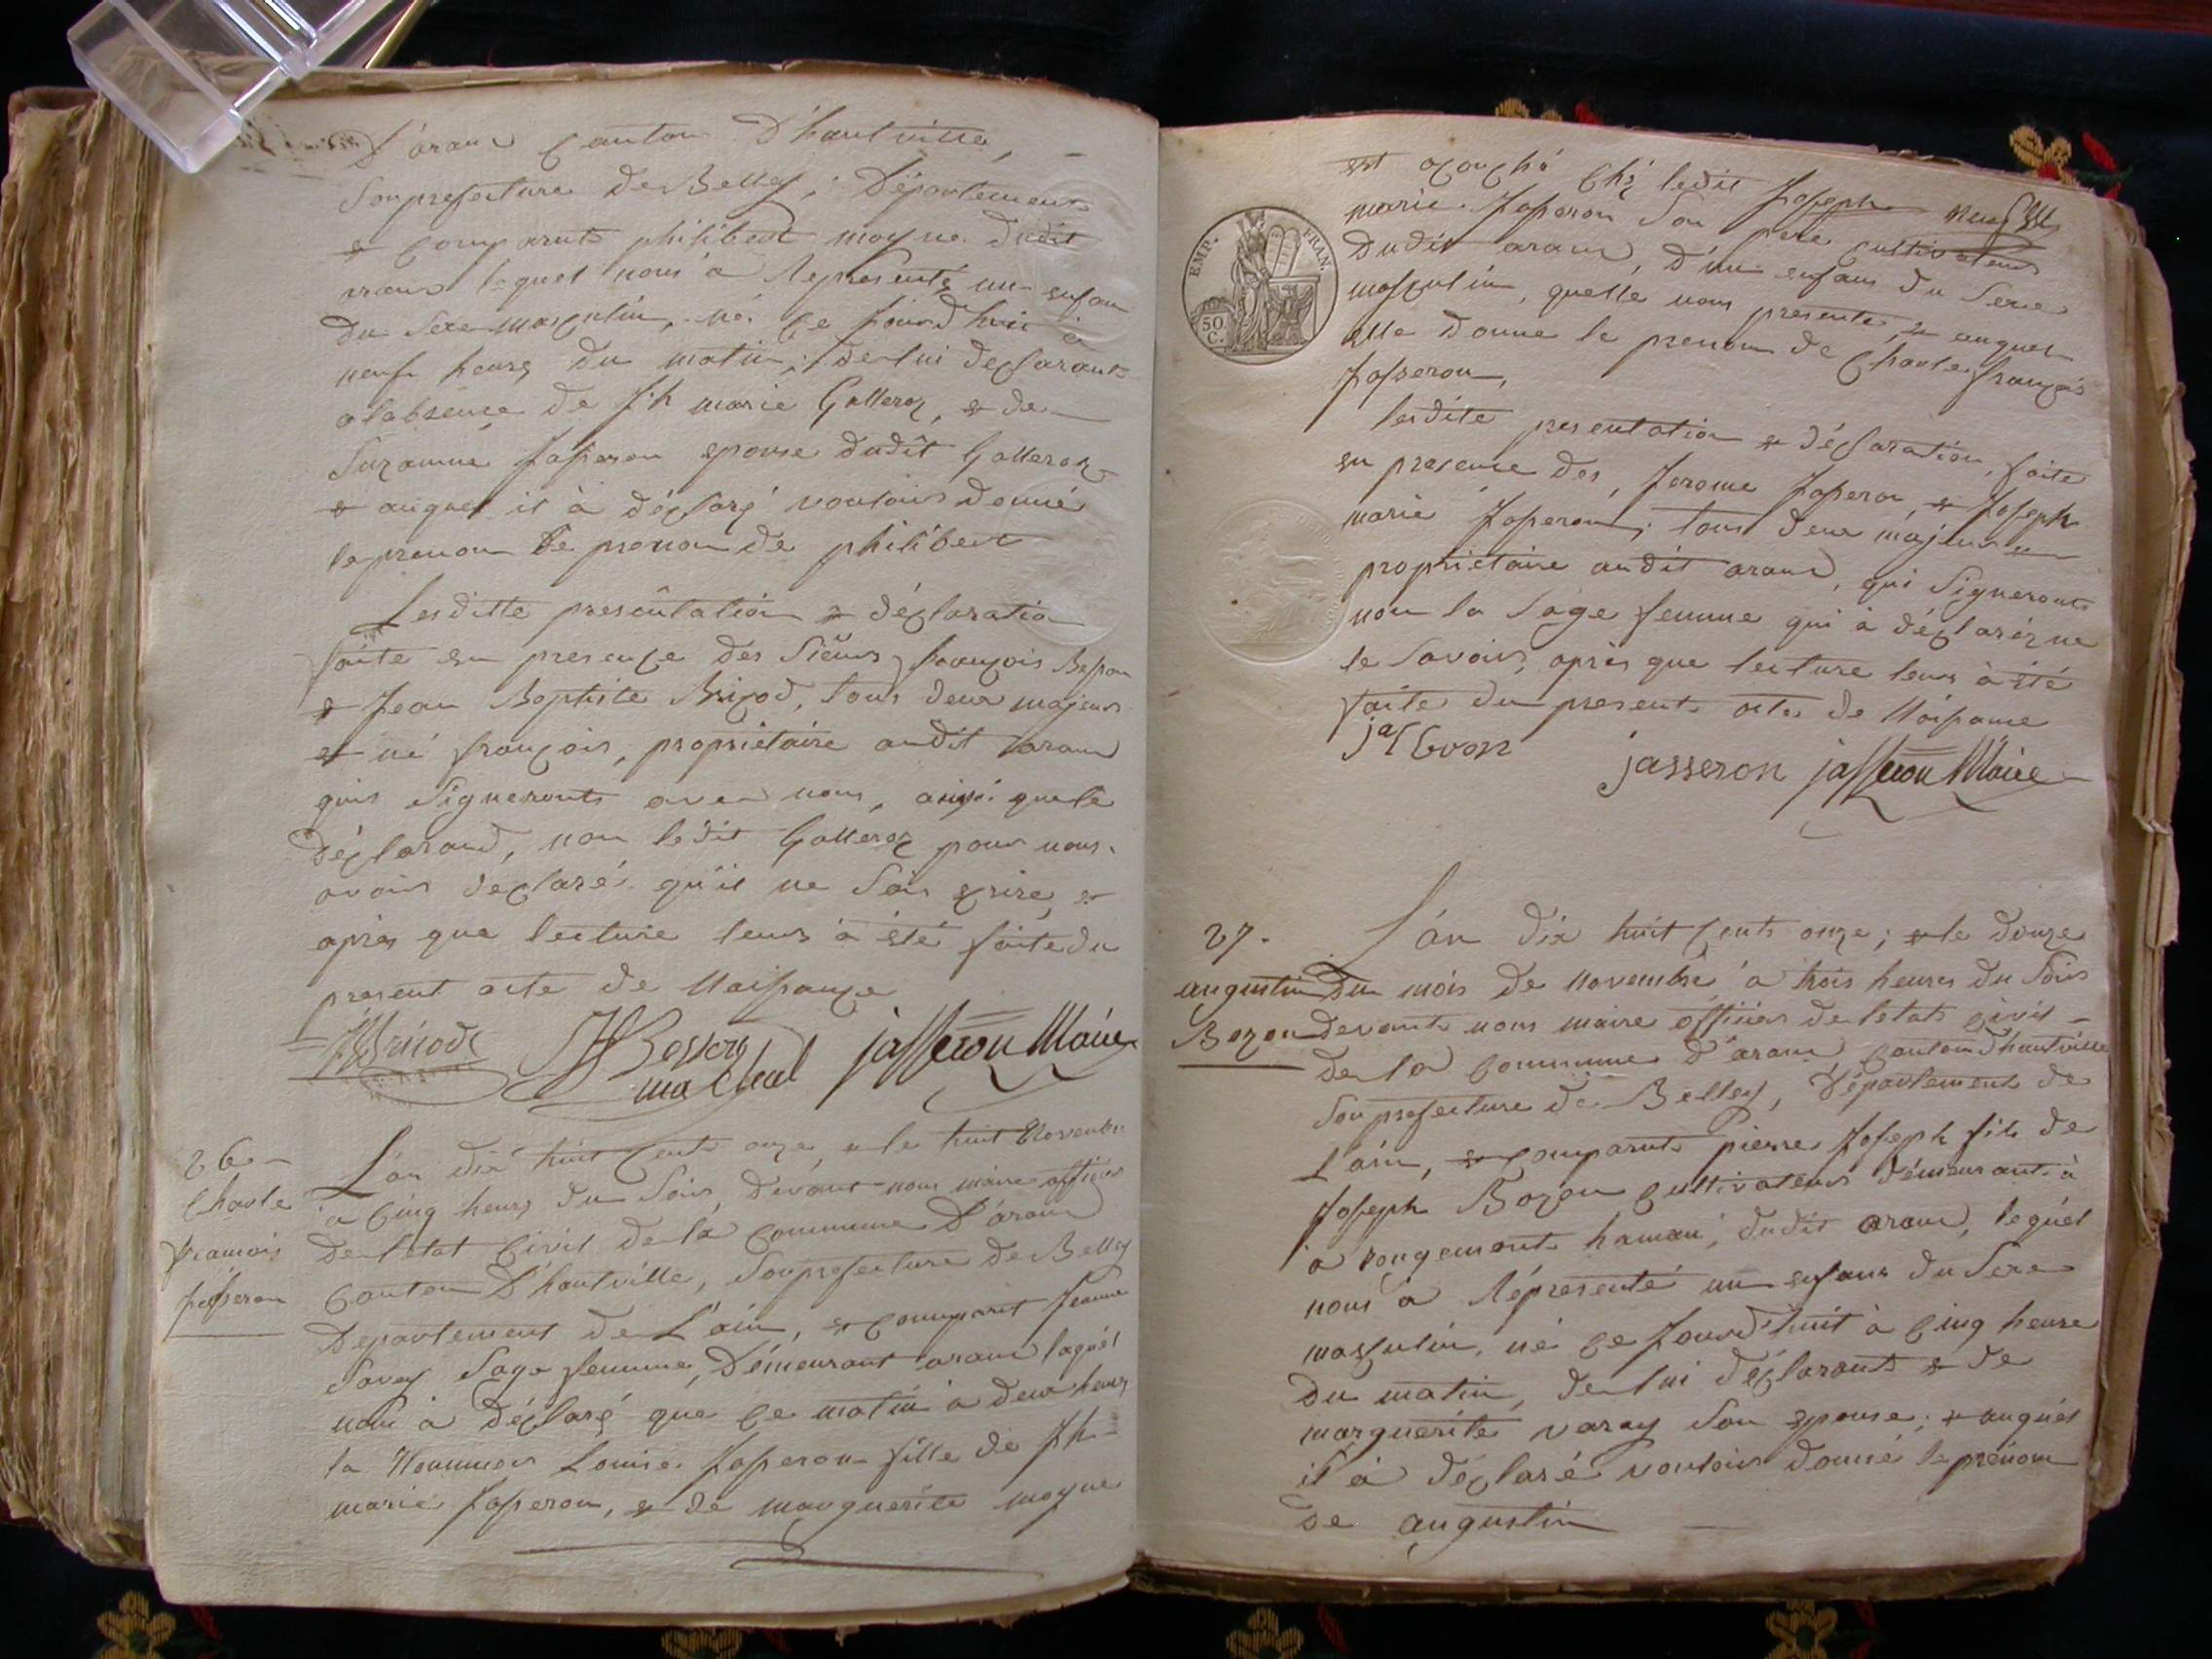 D'aranc Canton D'hautville,
Souprefecture de Belley, Département
& comparant philibert moyne dudit
aranc lequel nous a Représenté un enfan
du Sexe masculin, né ce jourd'huit à
neuf heures du matin, de lui declarant
a labsence de Jh marie Galleroz, & de
Suzanne Jasseron epouse dudit Galleroz
& auquel il à déclaré vouloir donné
le prenom de prenom de philibert
Lesditte presentation & déclaration
faite en presence des Sieurs françois Besson
& Jean Baptiste Brizod, tous deux majeurs
& né françois, propriétaire audit aranc
quis Signeronts avec nous, ainsi que le
déclarand, non ledit Galleroz pour nous
avoir declaré qu'il ne Sais ecrire, &
après que lecture leurs à été faite du
present acte de Naissance
Besson
jasseron Maire
26
Charle
francois
jasseron
L'an dix huit cents onze, & le huit Novembre
a cinq heures du Soir, devant nous maire officier
de letat Civil de la Commune D'aranc
Canton D'hautville, Souprefecture de Belley
Departement de L'ain, & comparut Jeanne
Savey Sage femme, Démeurant aranc laquel
nous à déclaré que ce matin à deux heures
la Nommée Louise Jasseron fille de Jh
marie Jasseron, & de marguerite moyne
est acouché chéz ledit Joseph
marie Jasseron Son pere cultivateur
dudit aranc, d'un enfans du Sexe
masculin, quelle nous presente, & auquel
elle donne le prenom de Charle françois
Jasseron,
EMP. FRAN.
50 C.
lesdite presentation & déclaration, faite
en presence des, Jerome Jasseron, & Joseph
marie Jasseron, tous deux majeurs &
propriétaire audit aranc, qui Signeronts
non la Sage femme qui à déclaréz ne
le Savoir, après que lecture leurs à été
faite du present acte de Naissance
jasseron jasseron Maire
27.
augustin
Bozon
L'an dix huit Cents onze; & le douze
du mois de Novembre a trois heures du Soir
devant nous maire officier de letats Civil
de la Commune D'aranc, Canton D'hautville
Souprefecture de Belley, Département de
L'ain, & comparut pierre Joseph fils de
Joseph Bozon Cultivateur démeurant à
a rougemont hamau, dudit aranc, lequél
nous a Répresenté un enfans du Sexe
masculin, né ce jourd'huit à cinq heure
du matin, de lui déclarant & de
marguerite varay Son epouse; & auquél
il à déclaré vouloir donné le prénom
de augustin